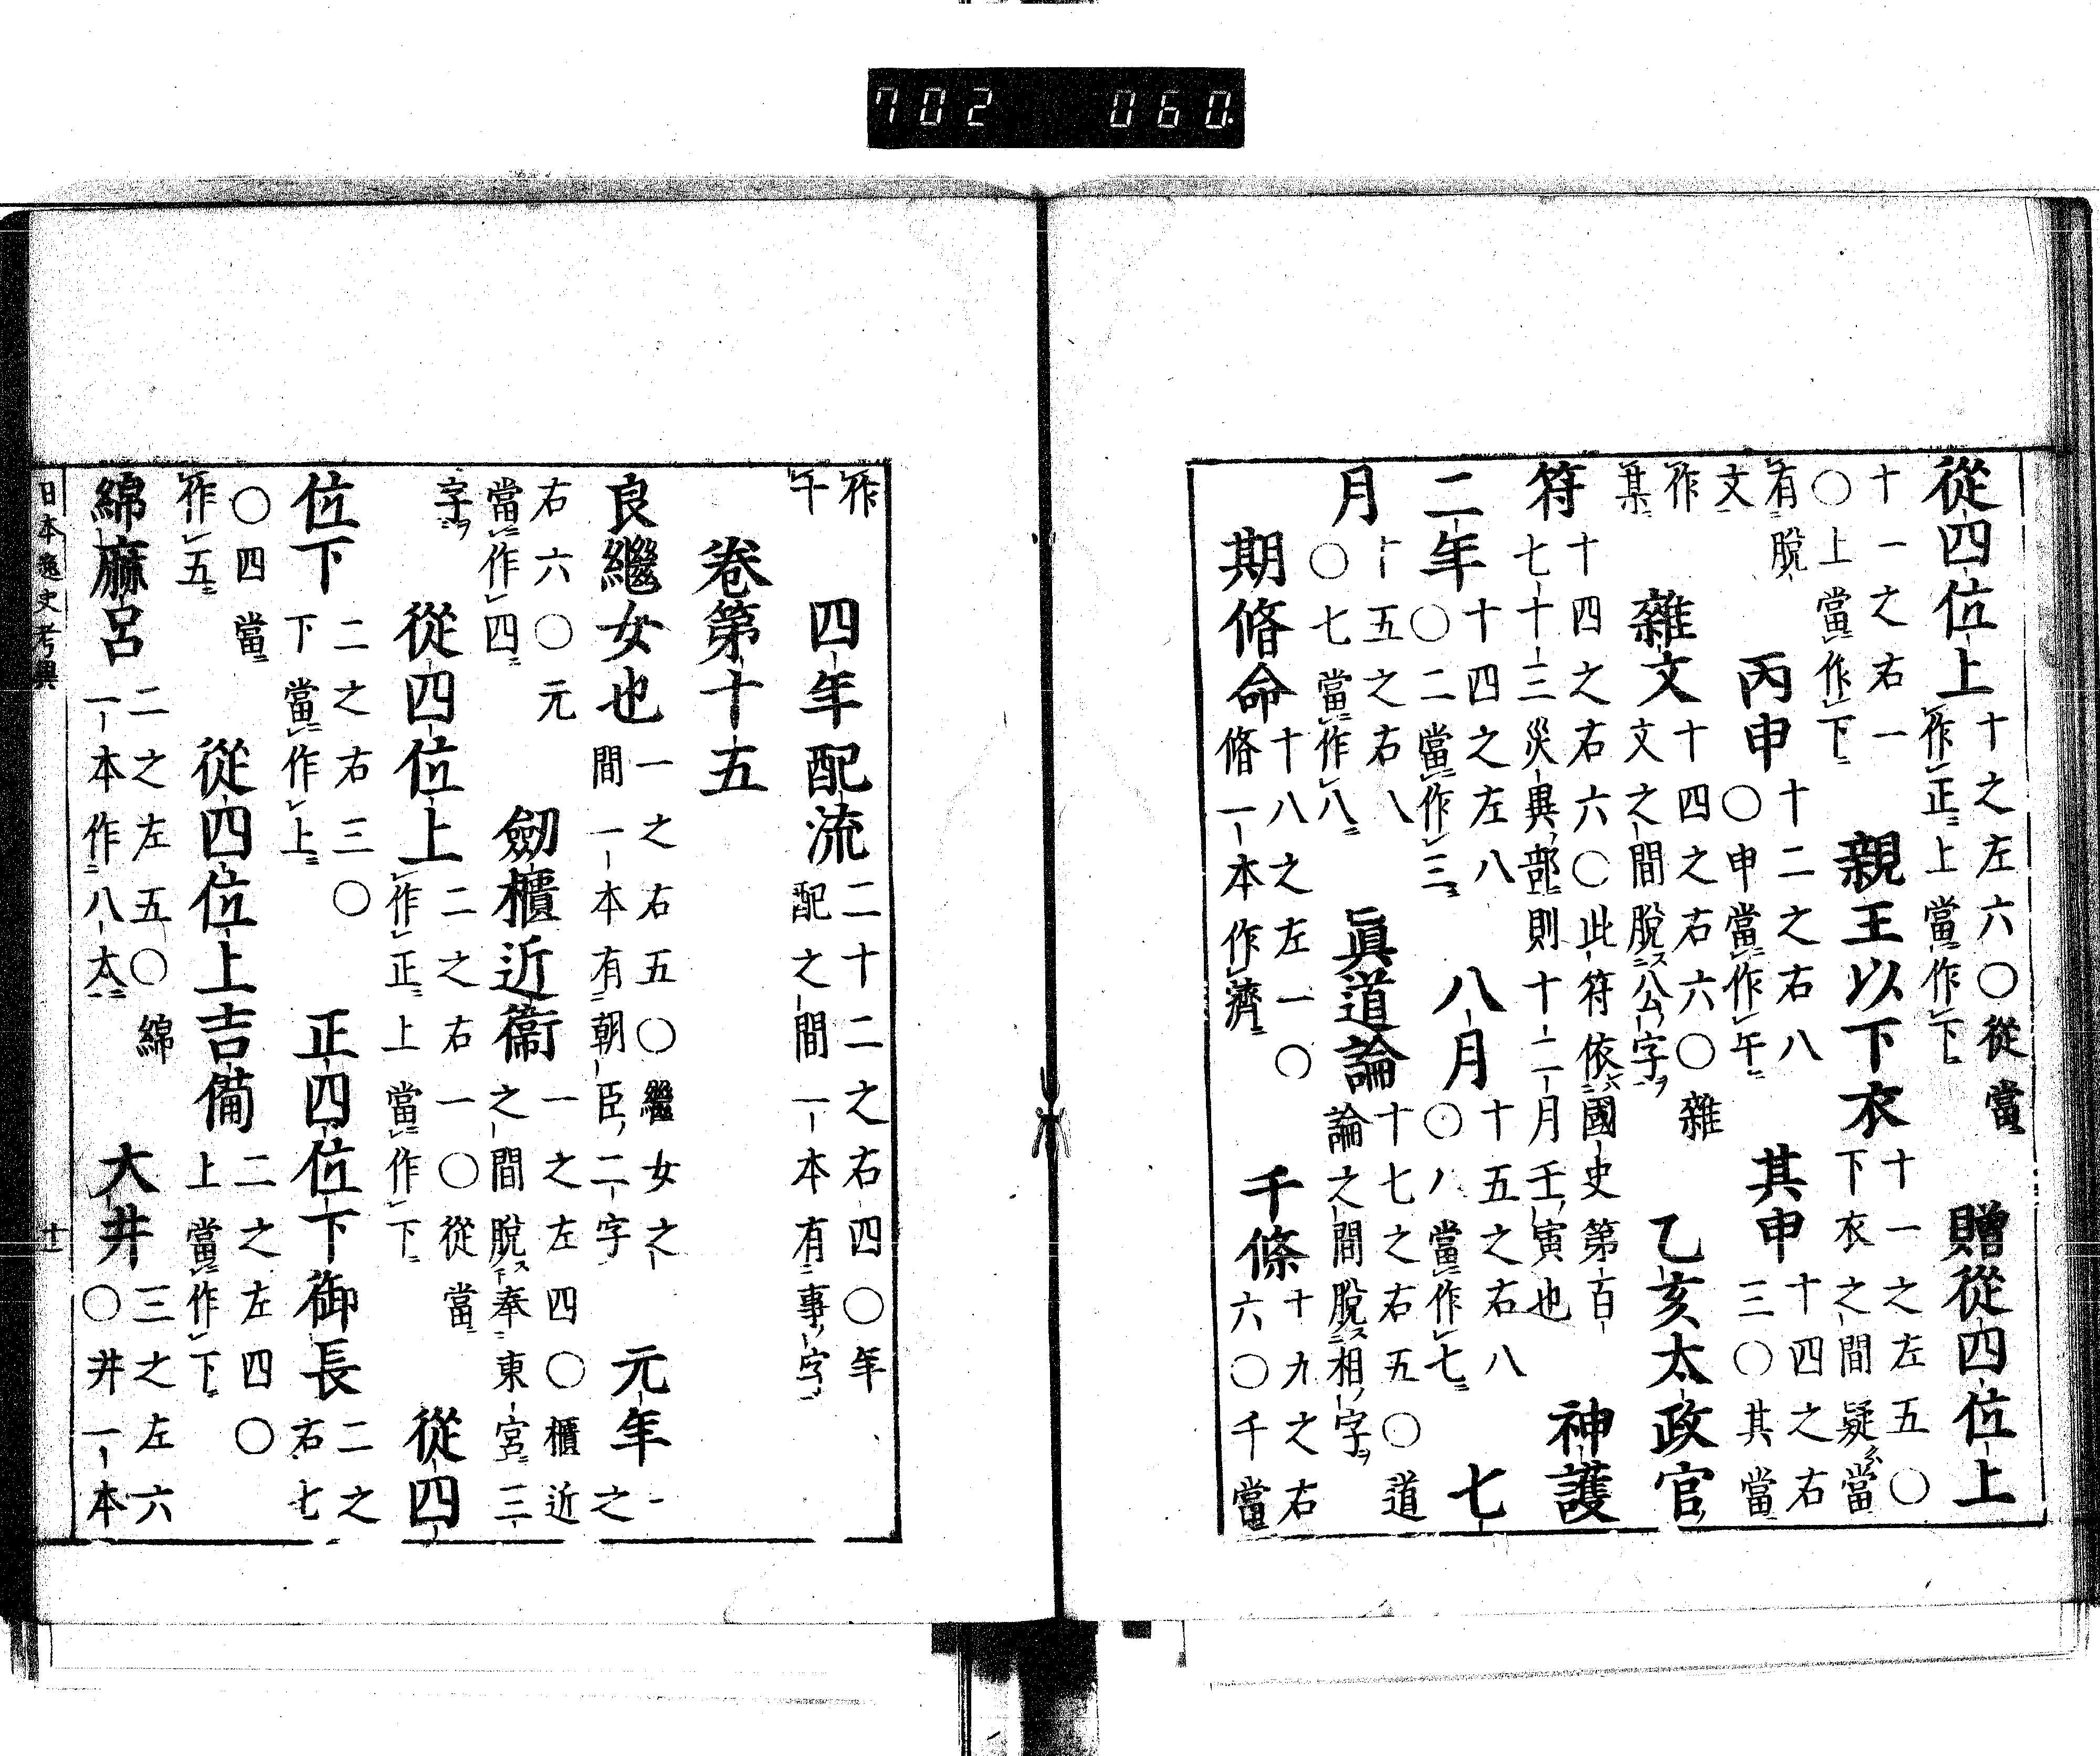 從四位上十之左六〇從當作正上當作下贈從四位上
十一之右一〇上當作下親王以下衣十一之左五〇下衣之間疑當
有脫文丙申十二之右八〇申當作午其申十四之右三〇其當
作某雜文十四之右六〇雜文之間脫公字乙亥太政官
符十四之右六〇此符依國史第百七十三災異部則十二月壬寅也神護
二年十四之左八〇二當作三八月十五之右八〇八當作七七
月十五之右八〇七當作八眞道論十七之右五〇道論之間脫相字
期脩命十八之左一〇脩一本作濟千條十九之右六〇千當
作午四年配流二十二之右四〇年配之間一本有事字
卷第十五
良繼女也一之右五〇繼女之間一本有朝臣二字元年一之
右六〇元當作四劒櫃近衞一之左四〇櫃近之間脫奉東宮三
字從四位上二之右一〇從當作正上當作下從四
位下二之右三〇下當作上正四位下御長二之右七
〇四當作五從四位上吉備二之左四〇上當作下
綿麻呂二之左五〇綿一本作八太大井三之左六〇井一本
日本逸史考異 十一
702 060